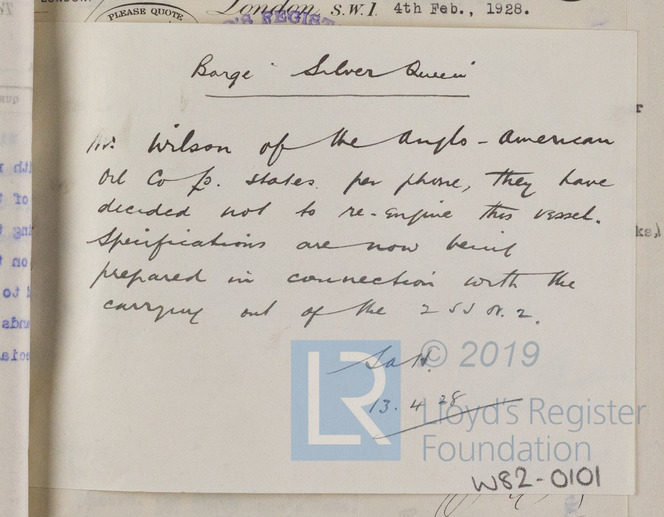 PLEASE QUOTE
London, S.W.1. 4th Feb., 1928.
Barge "Silver Queen"
Mr. Wilson of the Anglo-American
Oil Co states per phone, they have
decided not to re-engine this vessel.
Specifications are now being
prepared in connection with the
carrying out of the 2 SS No. 2.
13.4.28
© 2019
LR
Lloyd's Register
Foundation
W82-0101